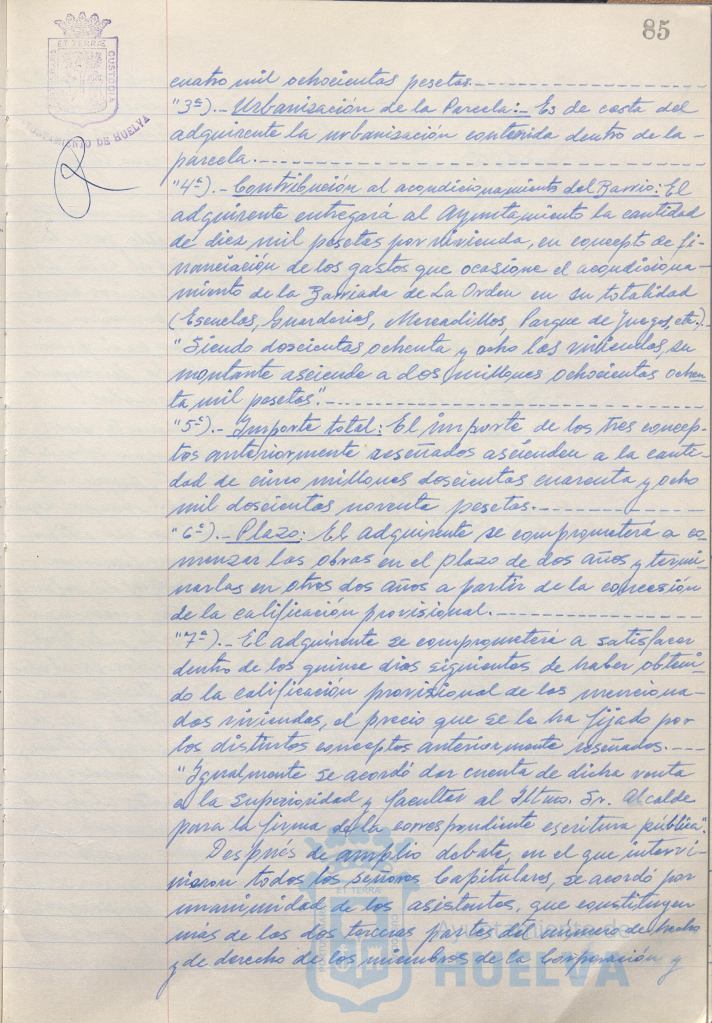 85
ET TERRÆ
CUSTODIA
AYUNTAMIENTO DE HUELVA
cuatro mil ochocientas pesetas.
"3ª).- Urbanización de la Parcela:- Es de costa del
adquirente la urbanización contenida dentro de la-
parcela.
"4ª).- Contribución al acondicionamiento del Barrio: El
adquirente entregará al Ayuntamiento la cantidad
de diez mil pesetas por vivienda, en concepto de fi-
nanciación de los gastos que ocasione el acondiciona-
miento de la Barriada de La Orden en su totalidad
(Escuelas, Guarderías, Mercadillos, Parque de Juegos, etc.).-
"Siendo doscientas ochenta y ocho las viviendas, su
montante asciende a dos millones ochocientas ochen-
ta mil pesetas".
"5ª).- Importe total: El importe de los tres concep-
tos anteriormente reseñados ascienden a la canti-
dad de cinco millones doscientas cuarenta y ocho
mil doscientas noventa pesetas.
"6ª).- Plazo: El adquirente se comprometerá a co-
menzar las obras en el plazo de dos años y termi-
narlas en otros dos años a partir de la concesión
de la calificación provisional.
"7ª).- El adquirente se comprometerá a satisfacer
dentro de los quince días siguientes de haber obteni-
do la calificación provisional de las menciona-
das viviendas, el precio que se le ha fijado por
los distintos conceptos anteriormente reseñados.
"Igualmente se acordó dar cuenta de dicha venta
a la Superioridad y facultar al Iltmo. Sr. Alcalde
para la firma de la correspondiente escritura pública".
Después de amplio debate, en el que intervi-
nieron todos los señores Capitulares, se acordó por
unanimidad de los asistentes, que constituyen
más de las dos terceras partes del número de hecho
y de derecho de los miembros de la Corporación y
ET TERRÆ
Ayuntamiento de
HUELVA